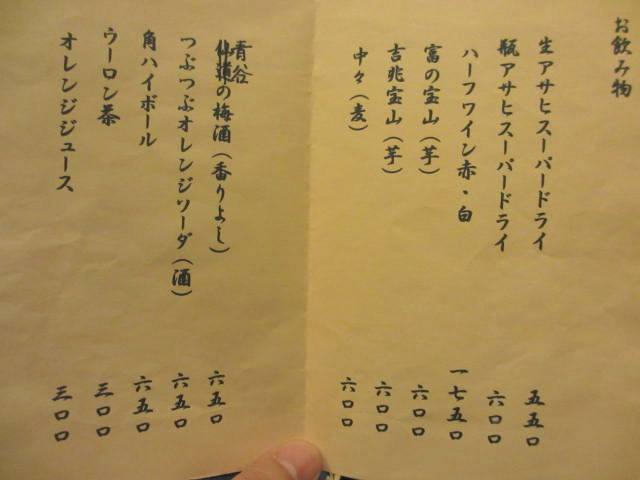 お飲み物
生アサヒスーパードライ 五五〇
瓶アサヒスーパードライ 六〇〇
ハーフワイン赤・白 一七五〇
富の宝山（芋） 六〇〇
吉兆宝山（芋） 六〇〇
中々（麦） 六〇〇
青谷の梅酒（香りよし） 六五〇
つぶつぶオレンジソーダ（酒） 六五〇
角ハイボール 六五〇
ウーロン茶 三〇〇
オレンジジュース 三〇〇